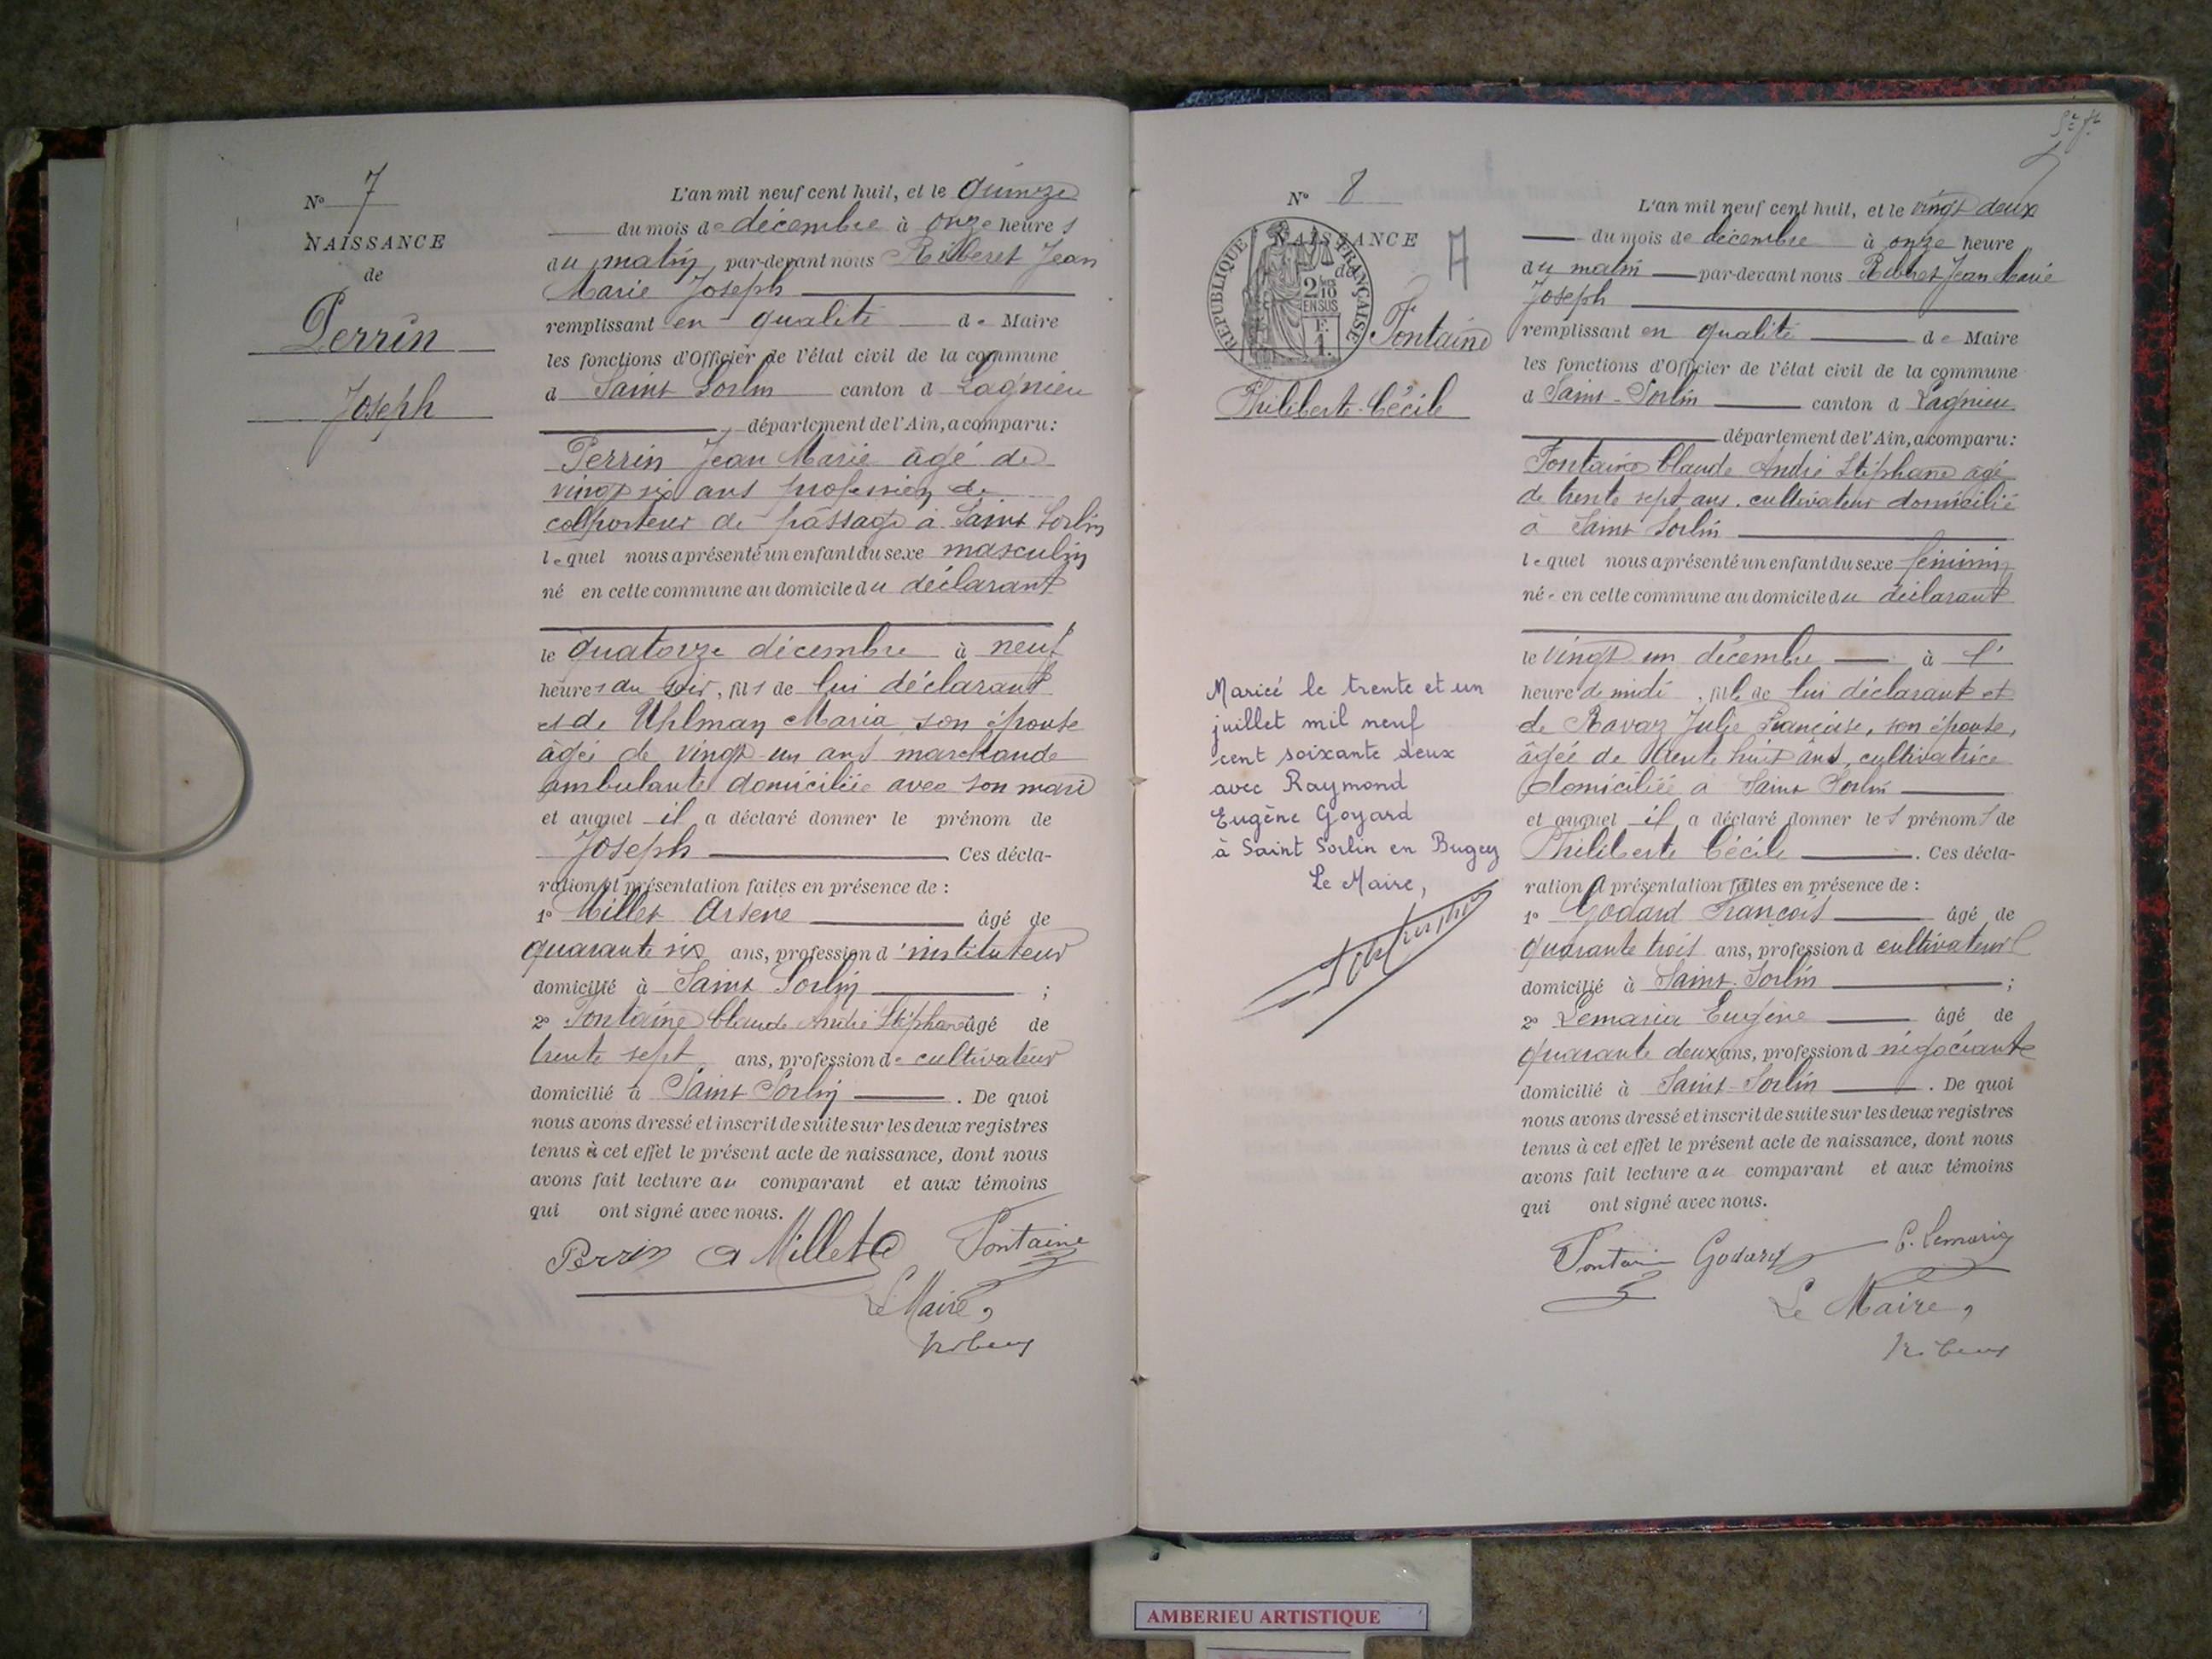 N° 7
NAISSANCE
de
Perrin
Joseph
L'an mil neuf cent huit, et le quinze
du mois de décembre à onze heures
du matin, par-devant nous Riberet Jean
Marie Joseph
remplissant en qualité de Maire
les fonctions d'Officier de l'état civil de la commune
d Saint Sorlin canton d Lagnieu
département de l'Ain, a comparu:
Perrin Jean Marie âgé de
vingt six ans profession de
colporteur de passage à Saint Sorlin
lequel nous a présenté un enfant du sexe masculin
né en cette commune au domicile du déclarant
le quatorze décembre à neuf
heures du soir, fils de lui déclarant
et de Uhlman Maria son épouse
âgée de vingt un ans marchande
ambulante domiciliée avec son mari
et auquel il a déclaré donner le prénom de
Joseph Ces décla-
ration et présentation faites en présence de :
1° Millet Arsène âgé de
quarante six ans, profession d'instituteur
domicilié à Saint Sorlin ;
2° Fontaine Claude André Stéphane âgé de
trente sept ans, profession de cultivateur
domicilié à Saint Sorlin . De quoi
nous avons dressé et inscrit de suite sur les deux registres
tenus à cet effet le présent acte de naissance, dont nous
avons fait lecture au comparant et aux témoins
qui ont signé avec nous.
Perrin A Millet Fontaine
Le Maire,
N° 8
NAISSANCE
de
RÉPUBLIQUE FRANÇAISE
2/10
EN SUS
F.
1.
Fontaine
Philiberte Cécile
Mariée le trente et un
juillet mil neuf
cent soixante deux
avec Raymond
Eugène Goyard
à Saint Sorlin en Bugey
Le Maire,
L'an mil neuf cent huit, et le vingt deux
du mois de décembre à onze heure
du matin par-devant nous Riberet Jean Marie
Joseph
remplissant en qualité de Maire
les fonctions d'Officier de l'état civil de la commune
d Saint-Sorlin canton d Lagnieu
département de l'Ain, a comparu:
Fontaine Claude André Stéphane âgé
de trente sept ans. cultivateur domicilié
à Saint Sorlin
lequel nous a présenté un enfant du sexe féminin
née en cette commune au domicile du déclarant
le vingt un décembre à l'
heure de midi, fille de lui déclarant et
de Ravaz Julie Françoise, son épouse,
âgée de trente huit ans, cultivatrice
domiciliée à Saint Sorlin
et auquel il a déclaré donner les prénoms de
Philiberte Cécile . Ces décla-
ration et présentation faites en présence de :
1° Godard François âgé de
quarante trois ans, profession d cultivateur
domicilié à Saint-Sorlin ;
2° Lemaria Eugène âgé de
quarante deux ans, profession d négociante
domicilié à Saint-Sorlin . De quoi
nous avons dressé et inscrit de suite sur les deux registres
tenus à cet effet le présent acte de naissance, dont nous
avons fait lecture au comparant et aux témoins
qui ont signé avec nous.
Fontaine Godard E. Lemaria
Le Maire,
AMBERIEU ARTISTIQUE